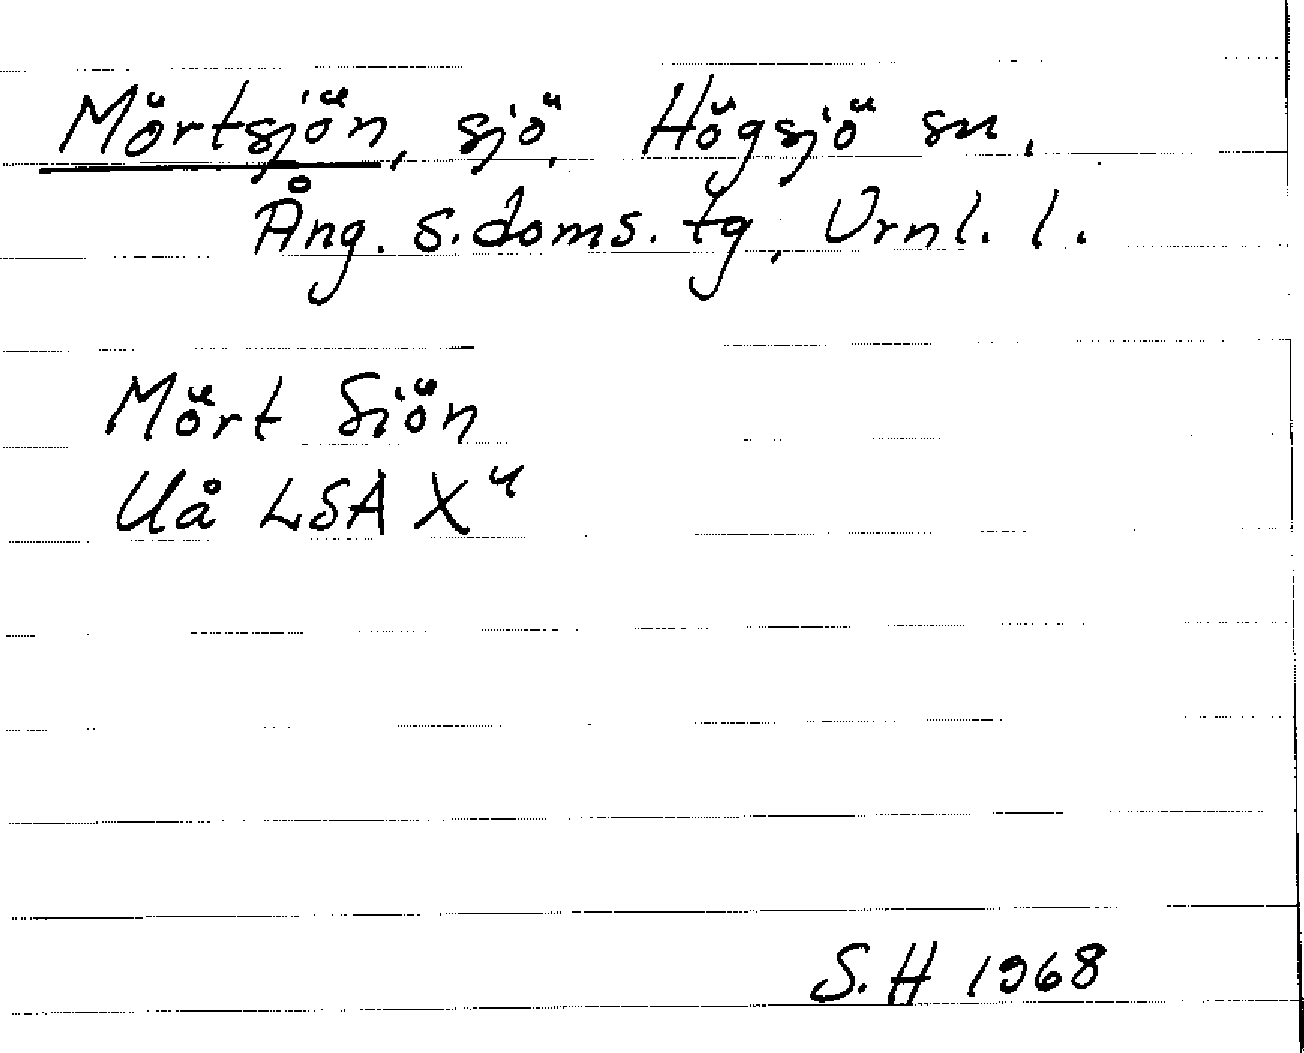 Mörtsjön, sjö, Högsjö sn.
Ång. s. doms. tg, Vrnl. l.
Mört Siön
Uå LSA X⁴
S.H 1968